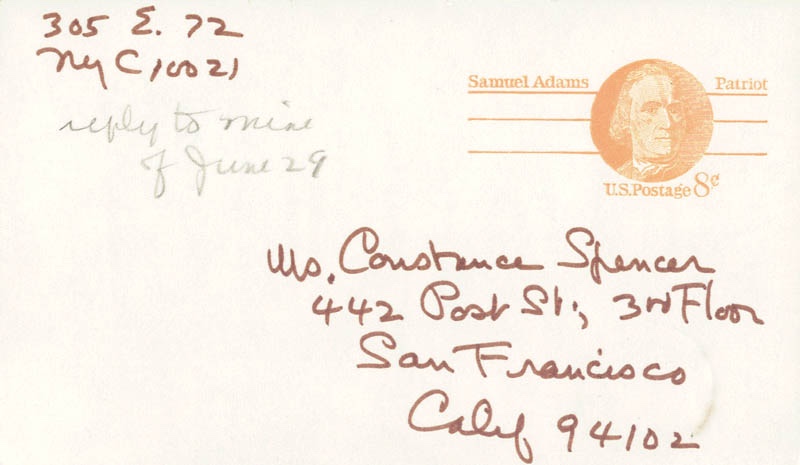 305 E. 72
NyC 10021
reply to mine
of June 29
Samuel Adams Patriot
U.S. Postage 8¢
Ms. Constance Spencer
442 Post St., 3rd Floor
San Francisco
Calif 94102